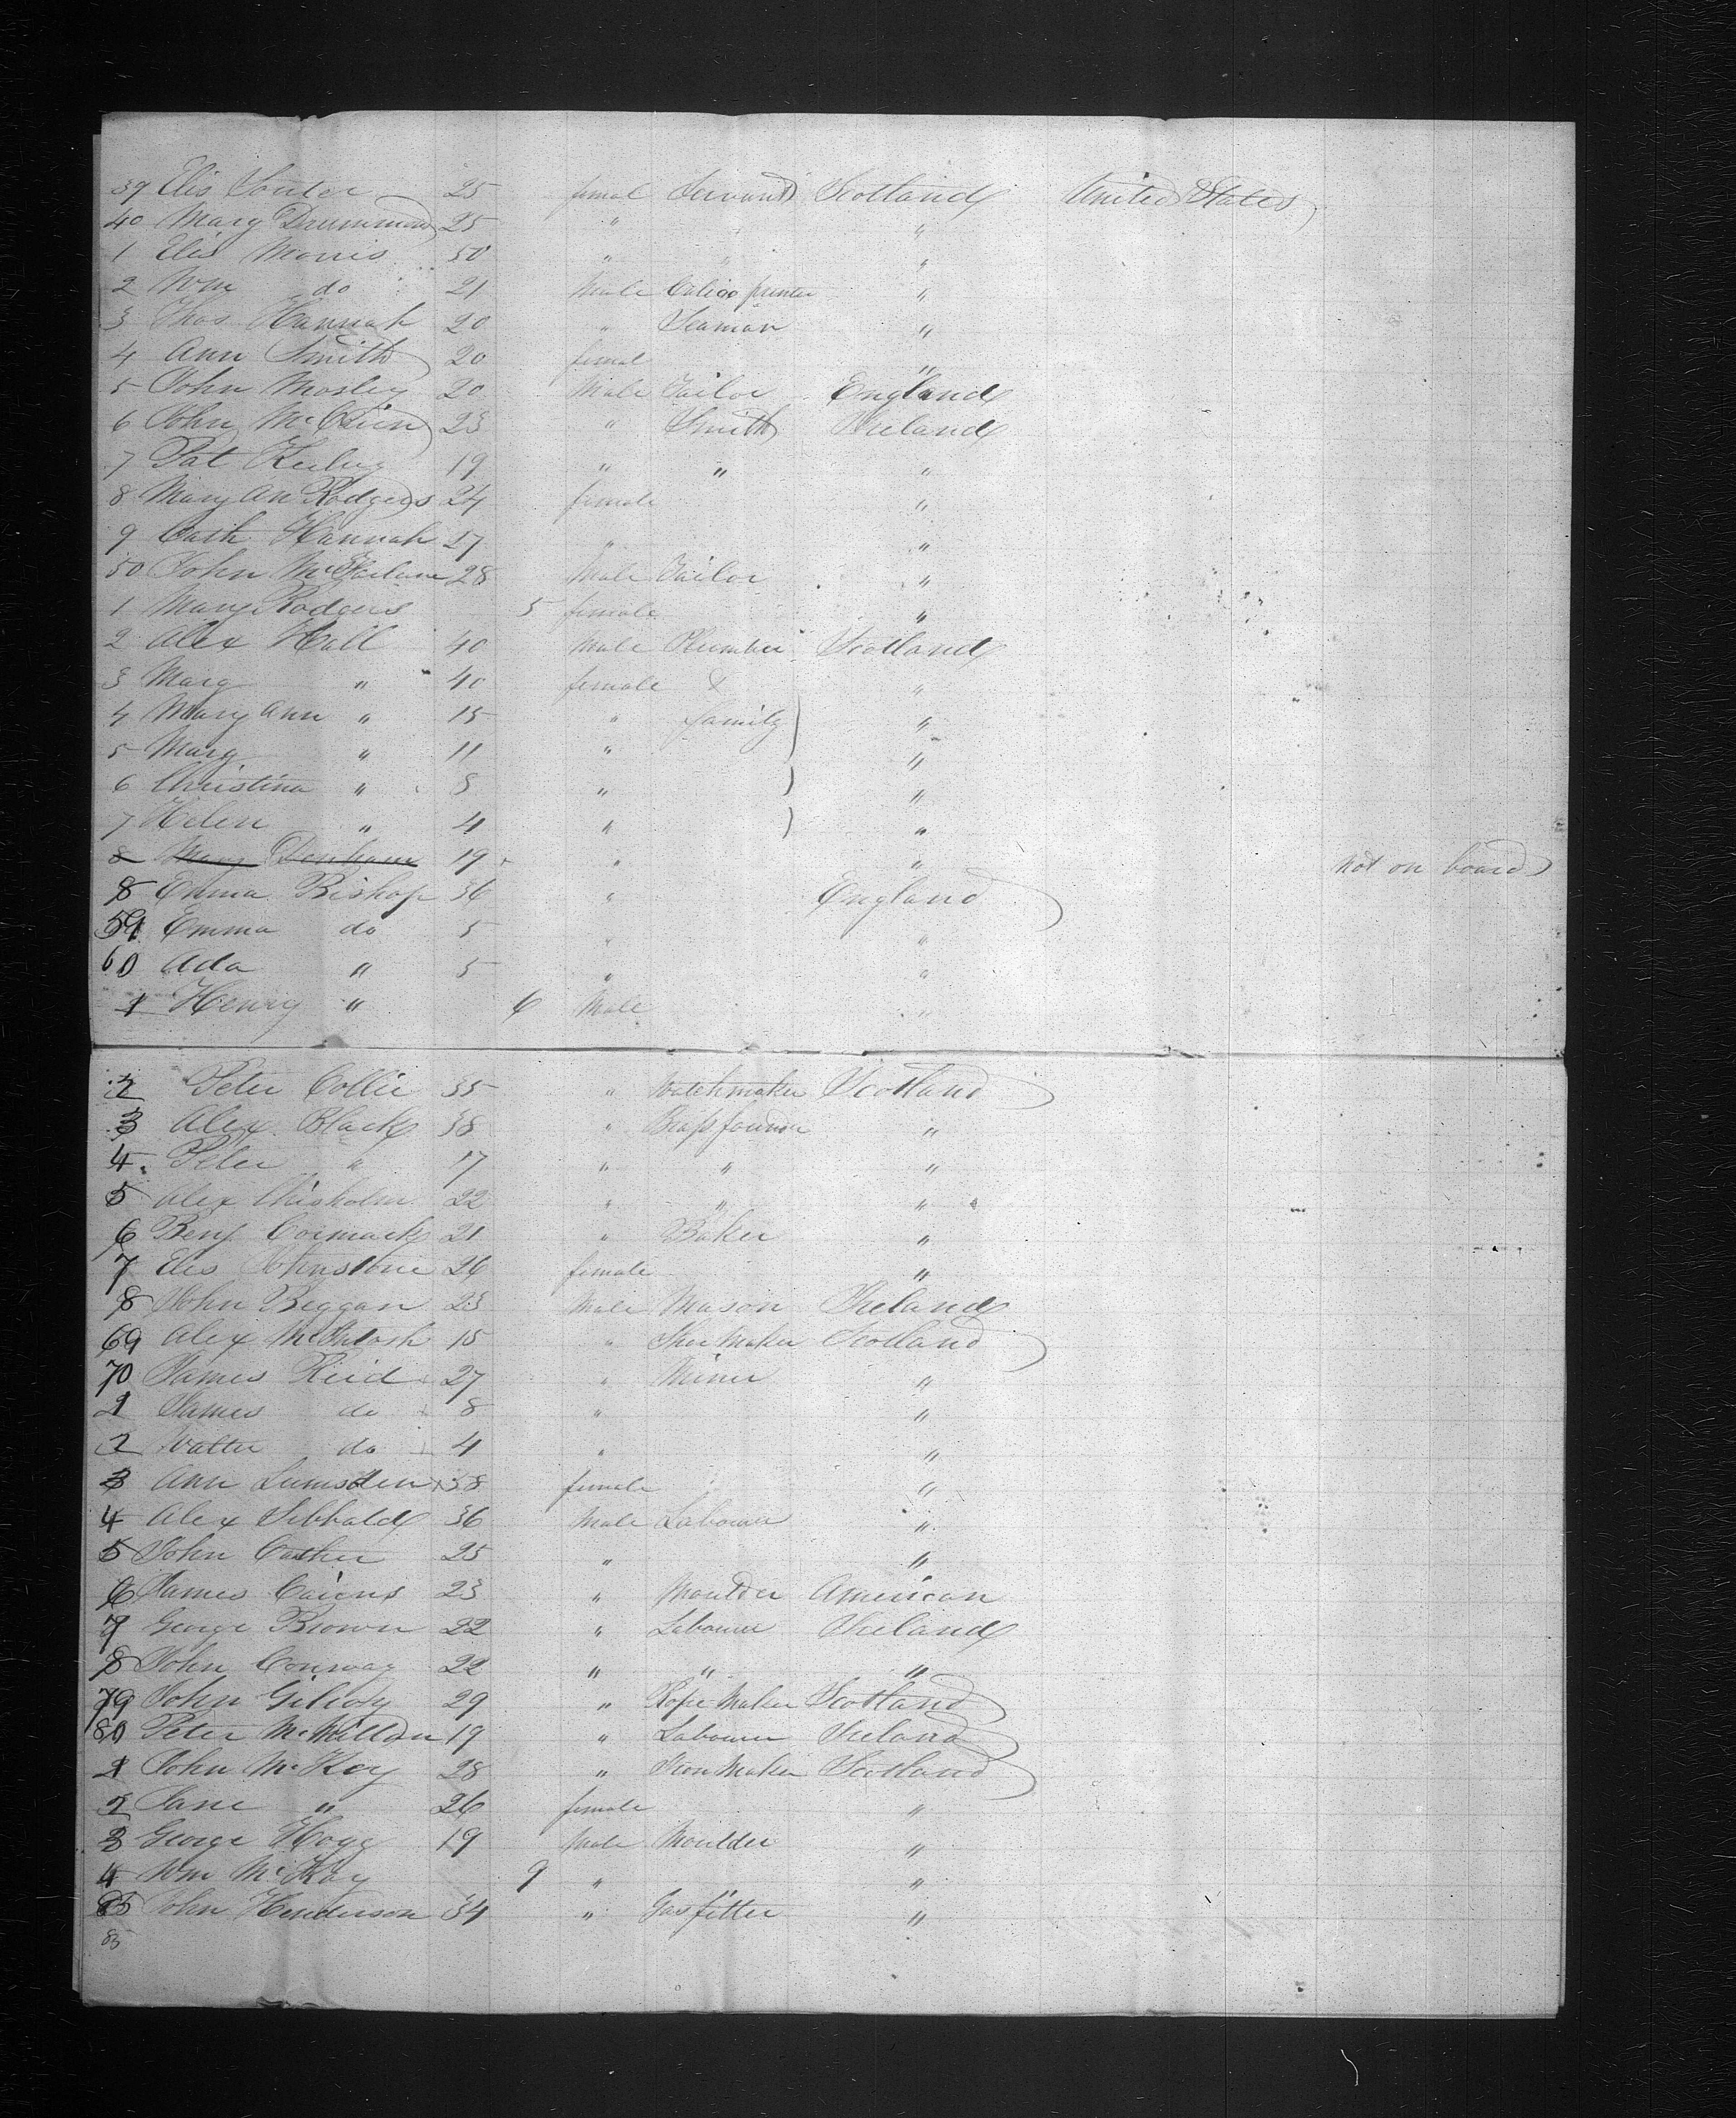 39 Elis Souter 25 female Servant Scotland United States
40 Mary Drummond 25 " "
1 Elis Morris 50 " " "
2 Wm do 21 Male Calico printer "
3 Thos Hannah 20 " Seaman "
4 Ann Smith 20 femal "
5 John Mosley 20 Male Tailor England
6 John McBrien 23 " Smith Ireland
7 Pat 19 " " "
8 Mary An Rodgers 24 female "
9 Cath Hannah 27 " "
50 John McFarlane 28 Male Tailor "
1 Mary Rodgers 5 female "
2 Alex Hall 40 Male Plumber Scotland
3 Mary " 40 female & "
4 Mary Ann " 15 " family "
5 Marg " 11 " "
6 Christina " 8 " "
7 Helen " 4 " "
8 Mary Denham 19 " " not on board
8 Emma Bishop 36 " England
59 Emma do 5 " "
60 Ada " 5 " "
1 Henry " 6 Male "
2 Peter Collie 35 " Watchmaker Scotland
3 Alex Black 38 " Brass founder "
4 Peter " 17 " " "
5 Alex Chisholm 22 " " "
6 Benj Cormack 21 " Baker "
7 Elis Johnstone 26 female "
8 John Beggan 23 Male Mason Ireland
69 Alex McIntosh 15 " Shoe Maker Scotland
70 James Reid 27 " Miner "
1 James do 8 " "
2 Walter do 4 " "
3 Ann Lumsden 38 female "
4 Alex Sibbald 36 Male Labourer "
5 John Casher 25 " "
6 James Cairns 23 " Moulder American
7 George Brown 22 " Labourer Ireland
8 John Conway 22 " " "
79 John Gilroy 29 " Rope Maker Scotland
80 Peter McMillan 19 " Labourer Ireland
1 John McKay 28 " Iron Maker Scotland
2 Jane " 26 female "
3 George Hogg 19 Male Moulder "
4 Wm McKay 9 " "
85 John Henderson 34 " Gas fitter "
85